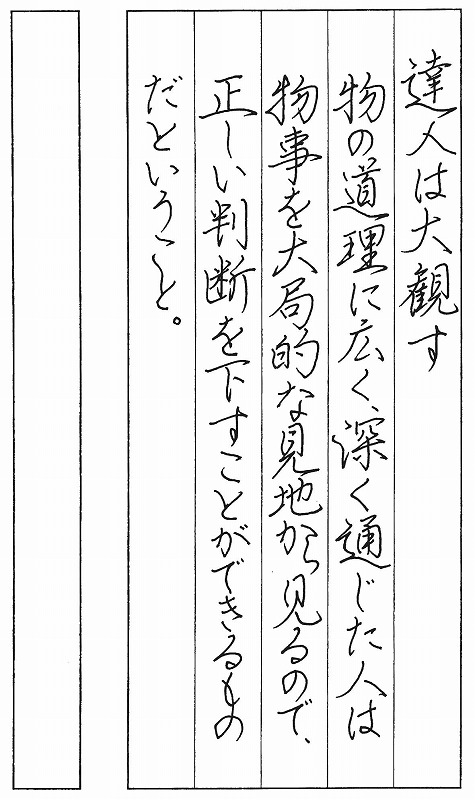 達人は大観す
物の道理に広く、深く通じた人は
物事を大局的な見地から見るので、
正しい判断を下すことができるもの
だということ。